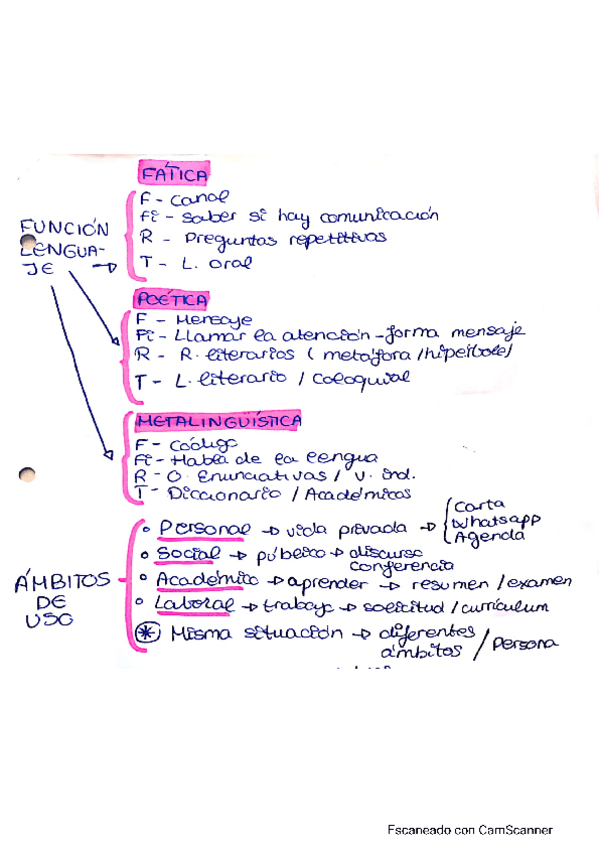 FÁTICA
F - canal
Fi - saber si hay comunicación
R - Preguntas repetitivas
T - L. oral
FUNCIÓN
LENGUA-
JE →
POÉTICA
F - Mensaje
Fi - Llamar la atención - forma mensaje
R - R. literarios (metáfora / hipérbole)
T - L. literario / coloquial
METALINGÜÍSTICA
F - Código
Fi - Habla de la lengua
R - O. Enunciativas / v. ind.
T - Diccionario / Académicos
ÁMBITOS
DE
USO
Personal → vida privada → Carta
Whatsapp
Agenda
Social → público → discurso
conferencia
Académico → aprender → resumen / examen
Laboral → trabajo → solicitud / currículum
* Misma situación → diferentes
ámbitos / Persona
Escaneado con CamScanner